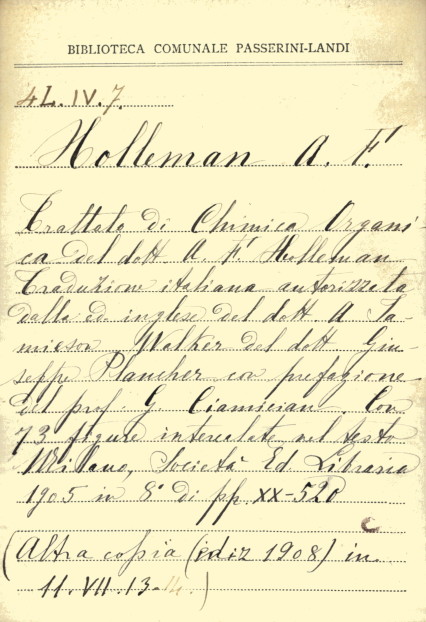 BIBLIOTECA COMUNALE PASSERINI-LANDI
4L.IV.7.
Holleman A. F.
Trattato di Chimica Organi-
ca del dott A. F. Holleman
Traduzione italiana autorizzata
dalla ed inglese del dott. A Ja-
mieson Walker del dott. Giu-
seppe Plancher con prefazione
del prof. G. Ciamician. Con
73 figure intercalate nel testo
Milano, Società Ed. Libraria
1905 in 8° di pp. XX-520
(Altra copia (ediz 1908) in
11. VII. 13-14.)